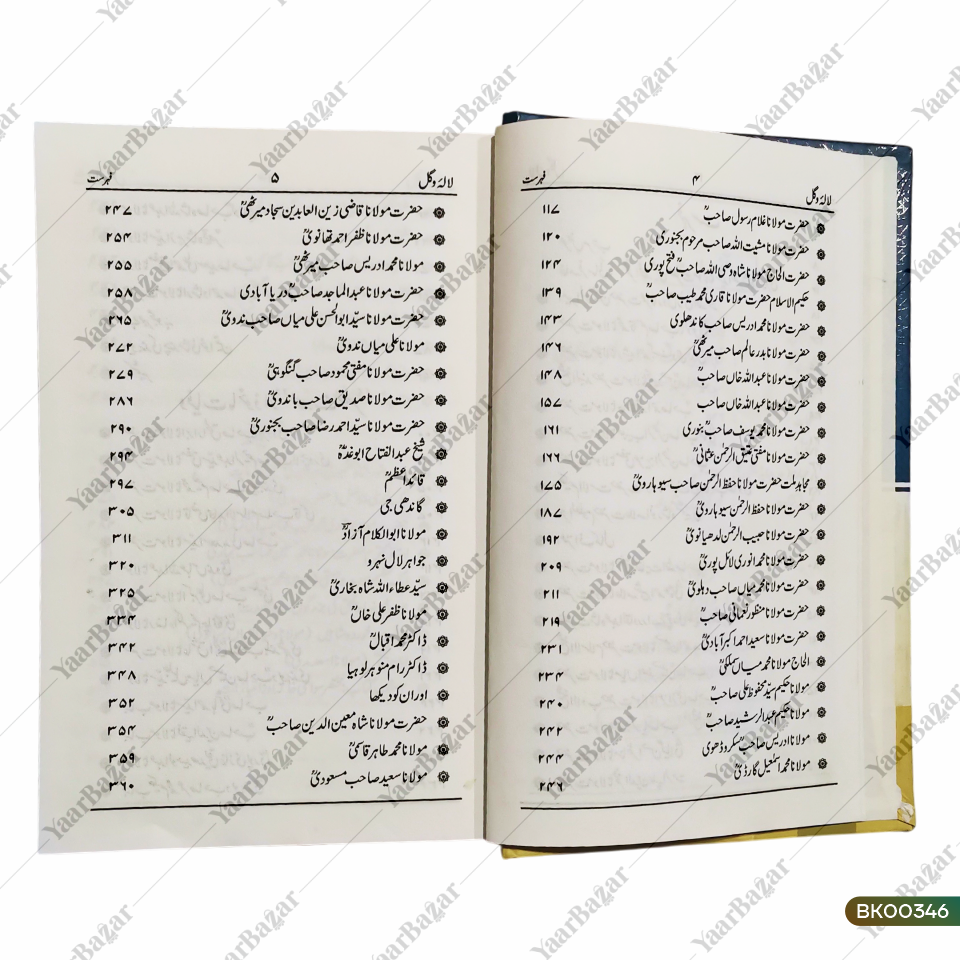 لالۂ وگل ۴ فہرست
حضرت مولانا غلام رسول صاحبؒ ۱۱۷
حضرت مولانا مشیت اللہ صاحب مرحوم بجنوری ۱۲۰
حضرت الحاج مولانا شاہ وصی اللہ صاحبؒ فتح پوری ۱۲۴
حکیم الاسلام حضرت مولانا قاری محمد طیب صاحبؒ ۱۳۹
حضرت مولانا محمد ادریس صاحب کاندھلوی ۱۴۳
حضرت مولانا بدر عالم صاحب میرٹھیؒ ۱۴۶
حضرت مولانا عبداللہ خاں صاحبؒ ۱۴۸
حضرت مولانا عبداللہ خاں صاحب ۱۵۷
حضرت مولانا محمد یوسف صاحبؒ بنوری ۱۶۱
حضرت مولانا مفتی عتیق الرحمٰن عثمانیؒ ۱۶۶
مجاہد ملت حضرت مولانا حفظ الرحمٰن صاحب سیوہارویؒ ۱۷۵
حضرت مولانا حفظ الرحمٰن سیوہارویؒ ۱۸۷
حضرت مولانا حبیب الرحمٰن لدھیانویؒ ۱۹۲
حضرت مولانا محمد انوری لائل پوریؒ ۲۰۹
حضرت مولانا محمد میاں صاحب دہلویؒ ۲۱۱
حضرت مولانا منظور نعمانی صاحبؒ ۲۱۹
حضرت مولانا سعید احمد اکبرآبادیؒ ۲۳۱
الحاج مولانا محمد میاں سملکیؒ ۲۳۴
مولانا حکیم سیّد محفوظ علی صاحبؒ ۲۴۰
مولانا حکیم عبدالرشید صاحبؒ ۲۴۲
مولانا ادریس صاحبؒ سکروڈھوی ۲۴۴
مولانا محمد اسمٰعیل گارڈیؒ ۲۴۶
لالۂ وگل ۵ فہرست
حضرت مولانا قاضی زین العابدین سجاد میرٹھیؒ ۲۴۷
حضرت مولانا ظفر احمد تھانویؒ ۲۵۴
مولانا محمد ادریس صاحب میرٹھیؒ ۲۵۵
حضرت مولانا عبدالماجد صاحبؒ دریاآبادی ۲۵۸
حضرت مولانا سیّد ابوالحسن علی میاں صاحب ندویؒ ۲۶۵
مولانا علی میاں ندویؒ ۲۷۲
حضرت مولانا مفتی محمود صاحب گنگوہیؒ ۲۷۹
حضرت مولانا صدیق صاحب باندویؒ ۲۸۶
حضرت مولانا سیّد احمد رضا صاحب بجنوریؒ ۲۹۰
شیخ عبدالفتاح ابوغدہؒ ۲۹۴
قائد اعظمؒ ۲۹۷
گاندھی جی ۳۰۵
مولانا ابوالکلام آزادؒ ۳۱۱
جواہر لال نہرو ۳۲۰
سیّد عطاء اللہ شاہ بخاریؒ ۳۲۵
مولانا ظفر علی خاںؒ ۳۳۴
ڈاکٹر محمد اقبالؒ ۳۴۲
ڈاکٹر رام منوہر لوہیا ۳۴۸
اور ان کو دیکھا ۳۵۲
حضرت مولانا شاہ معین الدین صاحبؒ ۳۵۴
مولانا محمد طاہر قاسمیؒ ۳۵۹
مولانا سعید صاحب مسعودیؒ ۳۶۰
YaarBazar
BK00346